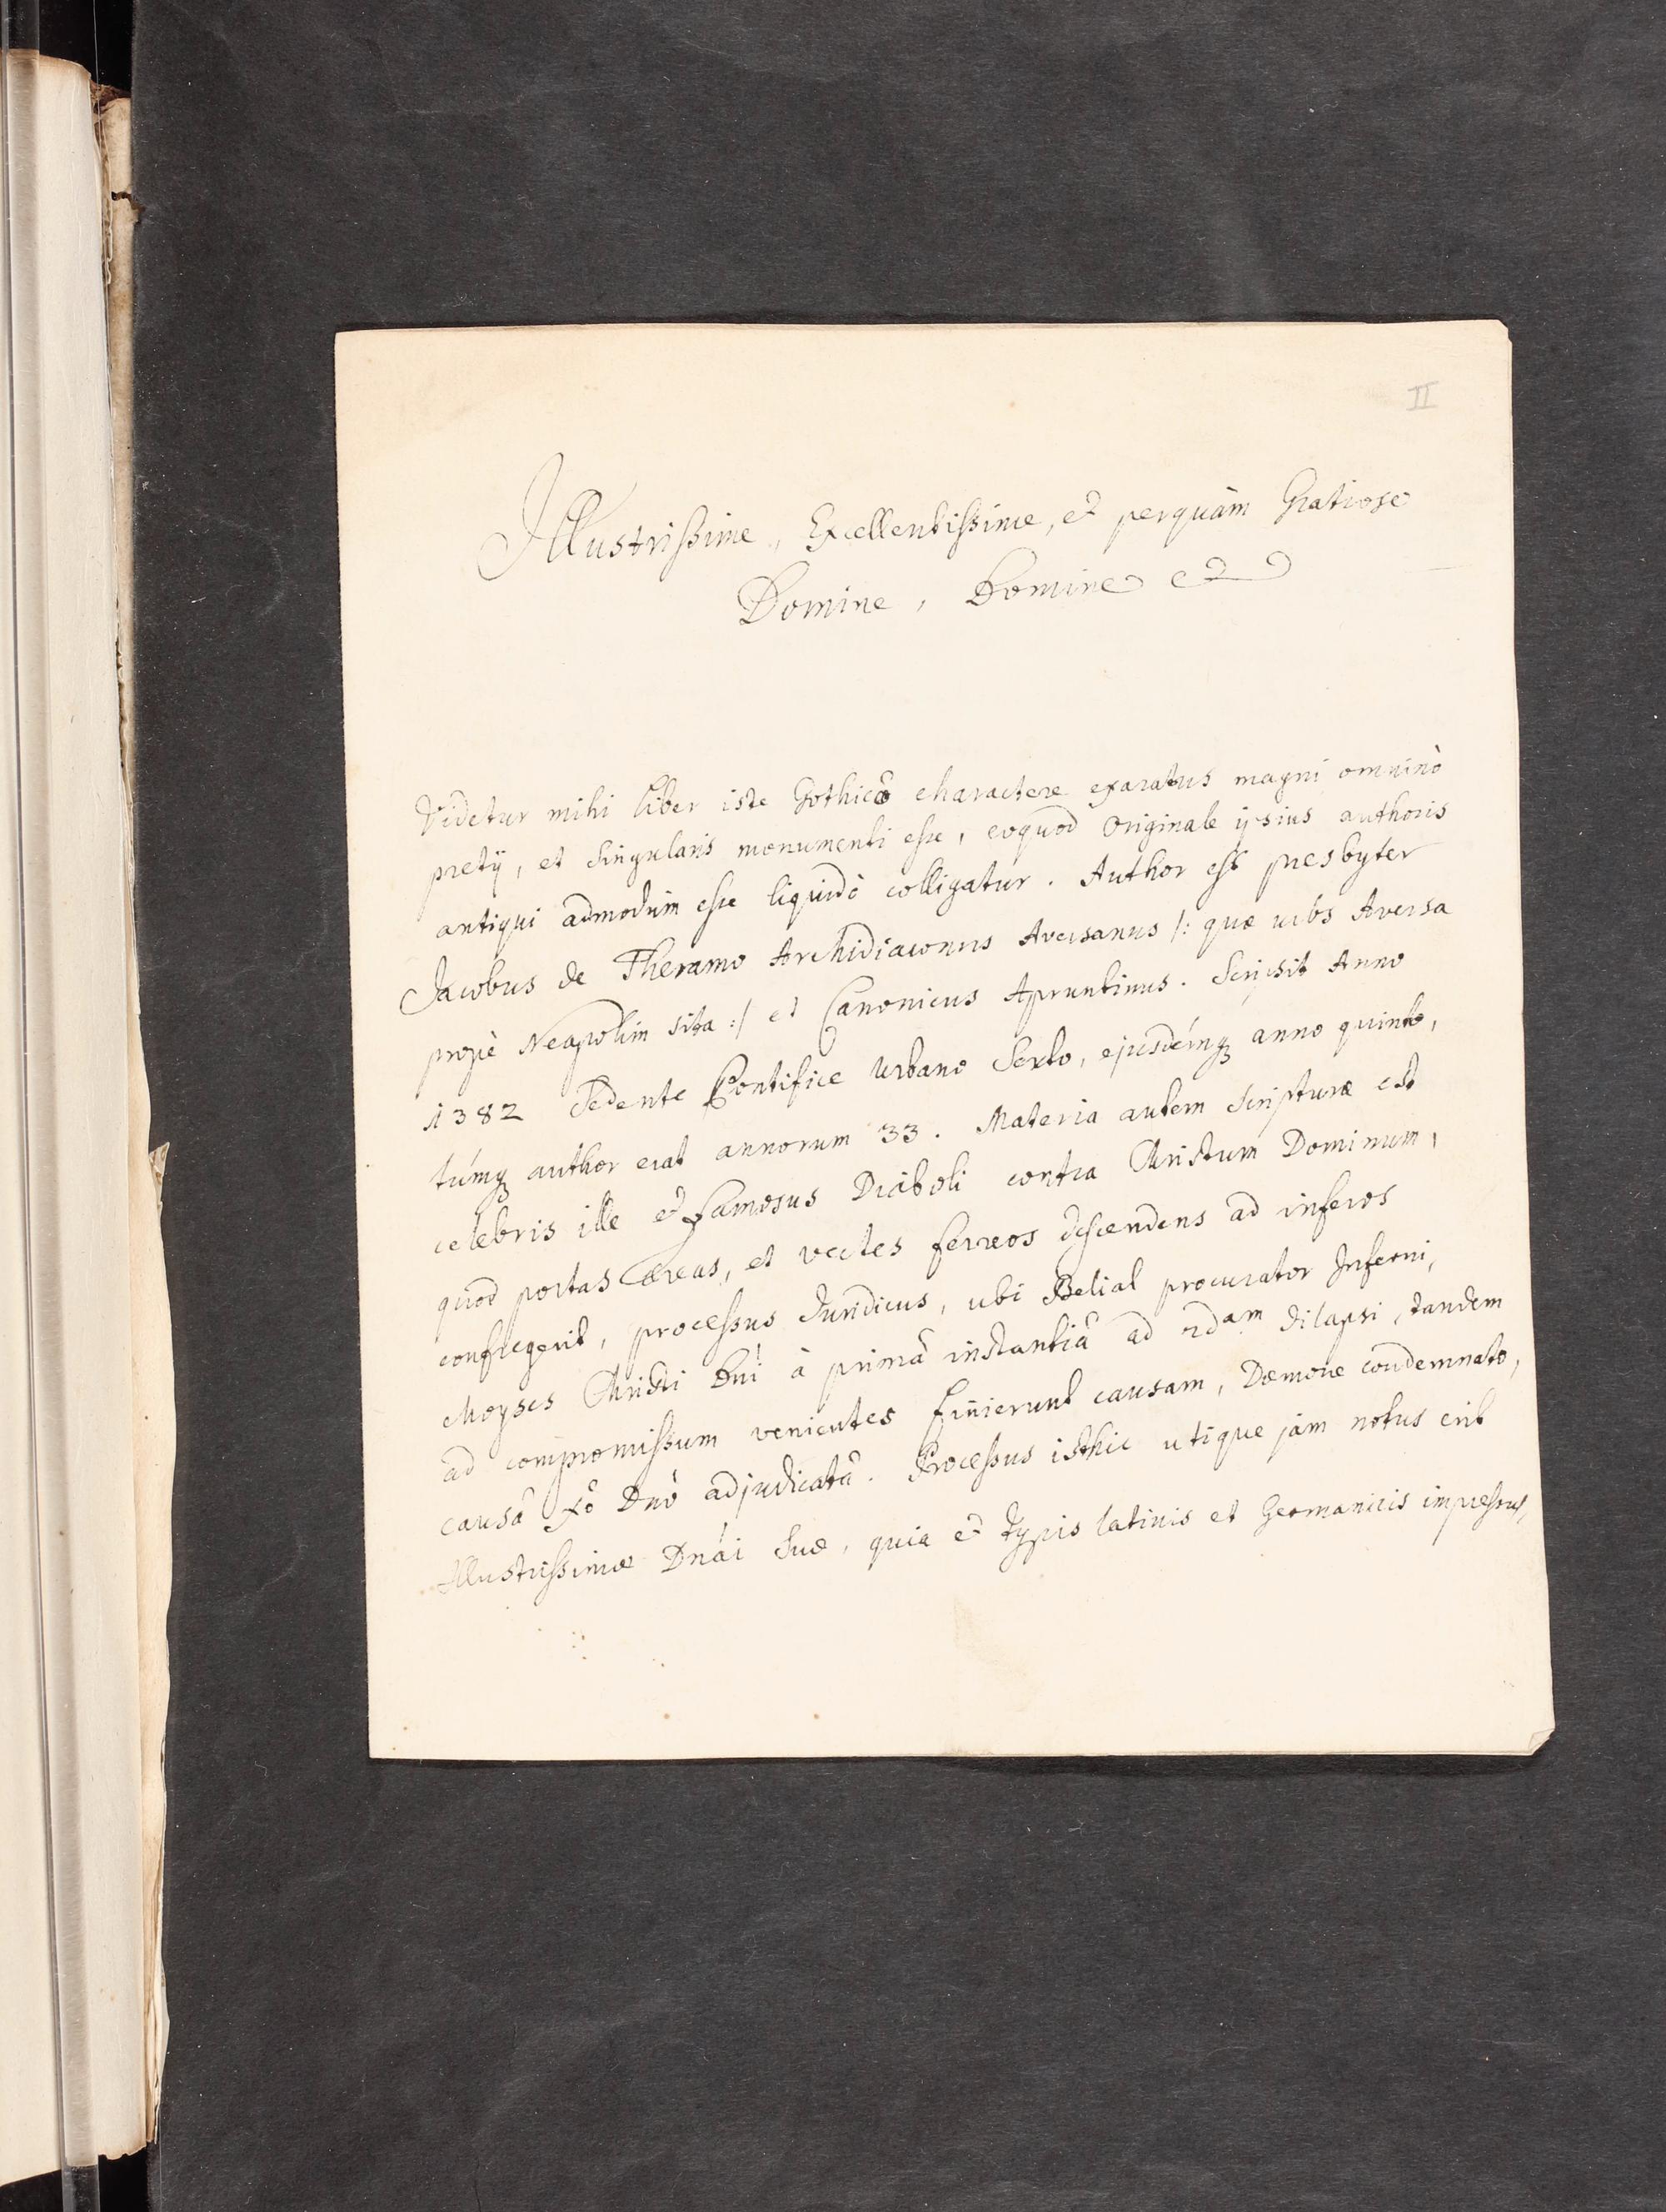 II
Illustrissime, Excellentissime, et perquàm Gratiose
Domine, Domine etc
Videtur mihi liber iste Gothicô charactere exaratus magni omninò
pretij, et singularis monumenti esse, eoquod Originale ipsius authoris
antiqui admodum esse liquidò colligatur. Author est presbyter
Jacobus de Theramo Archidiaconus Aversanus /: quæ urbs Aversa
propè Neapolim sita :/ et Canonicus Apruntinus. Scripsit Anno
1382 Sedente Pontifice Urbano Sexto, ejusdémq; anno quinto,
túmq; author erat annorum 33. Materia autem Scripturæ est
celebris ille et famosus Diaboli contra Christum Dominum,
quod portas æreas, et vectes ferreos descendens ad inferos
confregerit, processus Juridicus, ubi Belial procurator Inferni,
Moyses Christi Dni à primâ instantiâ ad 2dam dilapsi, tandem
ad compromissum venientes finierunt causam, Dæmone condemnato,
causâ Xô Dnô adjudicatâ. Processus isthic utique jam notus erit
Illustrissimæ Dnái Suæ, quia et typis latinis et Germanicis impressus,